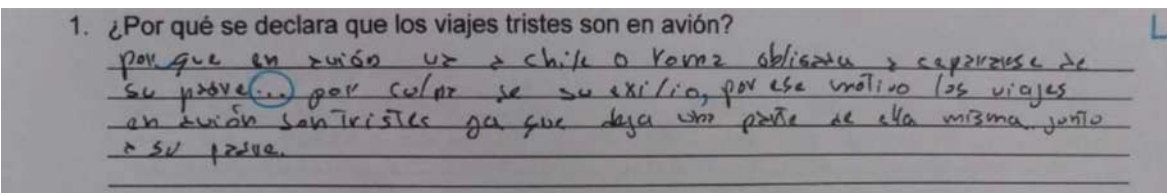 1. ¿Por qué se declara que los viajes tristes son en avión?
por que en avión va a chile o Roma obligada a capararse de
su padre (...) por culpa se su exilio, por ese motivo los viajes
en avión son tristes ya que deja una parte de ella misma junto
a su padre.
L